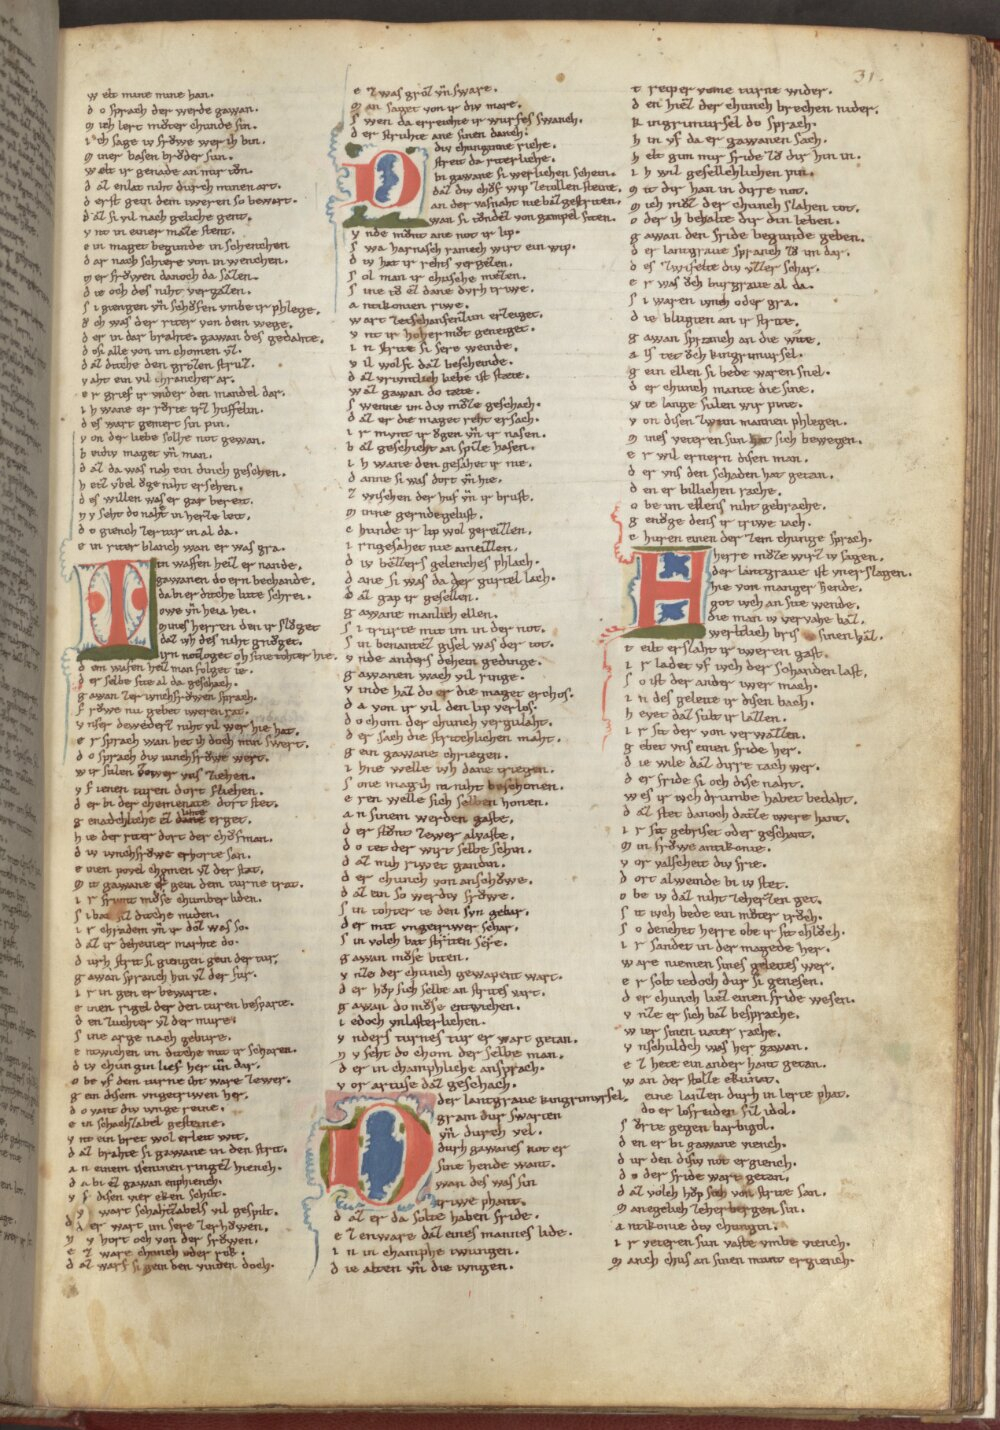 31.
welt mine mine han.
do sprach der werde gawan.
mich lert můter chunde sin.
ich sage iv frŏwe wer ich bin.
miner basen brůder sun.
welt ir genade an mir tůn.
daz enlat niht durch minen art.
derst gein dem iweren so bewart.
daz si vil nach geliche gent.
vnt in einer maze stent.
ein maget begunde in schenchen
dar nach schiere von in wenchen.
mer frŏwen danoch da sazen.
die och des niht vergazen.
si giengen vñ schůfen vmbe ir phlege.
ŏch was der riter von dem wege.
der in dar brahte. gawan des gedahte.
do si alle von im chomen vz.
daz diche den grozen struz.
vaht ein vil chrancher ar.
er greif ir vnder den mandel dar.
ih wane er rŏrte irz huffelin.
des wart gemert sin pin.
von der liebe solhe not gewan.
beidiv maget vñ man.
daz da was nah ein dinch geschehen.
hetiz vbel ŏge niht ersehen.
des willen was er gar bereit.
nv seht do naht in herze leit.
do giench zer tur in al da.
ein riter blanch wan er was gra.
in waffen heiz er nande.
gawanen do ern bechande.
da bi er diche lute schrei.
owe vñ heia hei.
mines herren den ir slůget
daz ivh des niht gnůget.
irn notzoget oh sine tohter hie.
dem wafen heiz man folget ie.
der selbe site al da geschach.
gawan zer iunchfrŏwen sprach.
frŏwe nu gebet iweren rat.
vnser dewederz niht vil wer hie hat.
er sprach wan het ih doch min swert.
do sprach div iunchfrŏwe wert.
wir sulen ze wer vns ziehen.
vf ienen turen dort fliehen.
der bi der chemenate dort stet.
genadchliche ez lihte erget.
hie der riter dort der chŏfman.
div iunchfrŏwe erhorte san.
einen povel chomen vz der stat.
mit gawane er gein dem turne trat.
ir frivnt můse chumber liden.
si bat siz diche miden.
ir chradem vñ ir doz was so.
daz ir deheiner marhte do.
durh strit si giengen gein der tur.
gawan spranch hin vz der fur.
ir in gen er bewarte.
einen rigel der den turen besparte.
den zuchter vz der mure.
sine arge nach gebure.
entwichen im diche mit ir scharen.
div chungin lief her vñ dar.
obe vf dem turne iht ware ze wer.
gein disem vngetriwen her.
do vant div iunge reine.
ein schachzabel gesteine.
vnt ein bret wol erleit wit.
daz brahte si gawane in den strit.
an einem iseninen ringez hiench.
da bi ez gawan enphiench.
vf disen vier eken schilt.
wart schahzabels vil gespilt.
der wart im sere zerhŏwen.
nv hort och von der frŏwen.
ez ware chunch oder roch.
daz warf si gein den vinden doch.
ez was groz vñ sware.
man saget von ir div mare.
swen da erreichte ir wurfes swanch.
der struhte ane sinen danch.
div chuniginne riche.
streit da riterliche.
bi gawane si werlichen schein.
daz div chŏf wip ze tollenstein.
an der vasnaht nie baz gestriten.
wan si tůndez von gampel siten.
vnde můnt ane not ir lip.
swa harnasch ramech wirt ein wip.
div hat ir rehts vergezen.
sol man ir chusche mezen.
sine tů ez dane durh triwe.
antikonien riwe.
wart ze tschanfenzun erzeiget.
vnt ir hoher můt geneiget.
in strite si sere weinde.
viz wol si daz bescheinde.
daz vriuntlich liebe ist state.
waz gawan do tate.
swenne im div můze geschach.
daz er die maget reht ersach.
ir munt ir ŏgen vñ ir nasen.
baz geschicht an spize hasen.
ih wane den gesahet ir nie.
danne si was dort vñ hie.
zwischen der huf vñ ir brust.
minne gernde gelust.
chunde ir lip wol gereizen.
irn gesahet nie ameizen.
div bezzers gelenches phlach.
dane si was da der gurtel lach.
daz gap ir gesellen.
gawane manlich ellen.
si turte mit im in der not.
sin benantez gisel was der tot.
vnde anders dehein gedinge.
gawanen wach vil ringe.
vinde haz do er die maget erchos.
da von ir vil den lip verlos.
do chom der chunch vergulaht.
der sach die stritechlichen maht.
gein gawane chriegen.
ihne welle ivh dane triegen.
sone magih in niht beschonen.
eren welle sich selben honen.
an sinem werden gaste.
der stůnt ze wer al vaste.
do tet der wirt selbe schin.
daz mih riwet gandin.
der chunch von anschŏwe.
daz ein so werdiv frŏwe.
sin tohter ie den svn gebar.
der mit vngetriwer schar.
sin volch bat striten sere.
gawan můse biten.
vnze der chunch gewapent wart.
der hŏp sich selbe an strites vart.
gawan do můse entwichen.
iedoch vnlasterlichen.
vnders turnes tur er wart getan.
nv seht do chom der selbe man.
der in champhliche ansprach.
vor artuse daz geschach.
der lantgrave kingrimvrsel.
gram dur swarten
vñ durch vel.
durh gawanes not er
sine hende want.
wan des was sin
triwe phant.
daz er da solte haben fride.
ez enware daz eines mannes lide.
in in champhe twungen.
die alten vñ die iungen.
treip er vome turne wider.
den hiez der chunch brechen nider.
kingrimursel do sprach.
hin vf da er gawanen sach.
helt gim mir fride zŭ dir hin in.
ih wil gesellechlichen pin.
mit dir han in dirre not.
mich můz der chunch slahen tot.
oder ih behalte dir din leben.
gawan den fride begunde geben.
der lantgrave spranch zŭ im dar.
des zwifelte div vzzer schar.
er was ŏch burgrave al da.
si waren iunch oder gra.
die blugten an ir strite.
gawan spranch an die wite.
als tet ŏch kingrimursel.
gein ellen si bede waren snel.
der chunch mante die sine.
wie lange sulen wir pine.
von disen zwein mannen phlegen.
mines veteren sun hat sich bewegen.
er wil ernern disen man.
der vns den schaden hat getan.
den er billichen rache.
obe im ellens niht gebrache.
genŏge dens ir triwe iach.
churen einen der zem chunge sprach.
herre můze wirz iv sagen.
der lantgrave ist vnerslagen.
hie von manger hende.
got iuch an site wende.
die man iv vervahe baz.
werltlich bris sinen haz.
teilt erslaht ir iweren gast.
ir ladet vf iuch der schanden last.
so ist der ander iwer mach.
in des geleite ir disen bach.
hevet daz sult ir lazen.
ir sit der von verwazen.
gebet vns einen fride her.
die wile daz dirre tach wer.
der fride si och dise naht.
wes ir iuch drumbe habet bedaht.
daz stet danoch datze iwere hant.
ir sit gebriset oder geschant.
min frŏwe antikonie.
vor valscheit div frie.
dort al weinde bi iv stet.
obe iv daz niht ze herzen get.
sit iuch bede ein můter trŭch.
so denchet herre obe ir sit chlŭch.
ir sandet in der magede her.
ware niemen sines geleites wer.
er solt iedoch dur si genesen.
der chunch liez einen fride wesen.
vnze er sich baz besprache.
wier sinen vater rache.
vnschuldch was her gawan.
ez hete ein ander hant getan.
wan der stolze ekunat.
eine lanzen durh in lerte phat.
do er iofreiden fiz idol.
fůrte gegen barbigol.
den er bi gawane viench.
dur den disiv not ergiench.
do der fride wart getan.
daz volch hŏp sich von strite san.
manegelich ze herbergen sin.
antikonie div chungin.
ir veteren sun vaste vmbe viench.
manch chus an sinen munt ergiench.